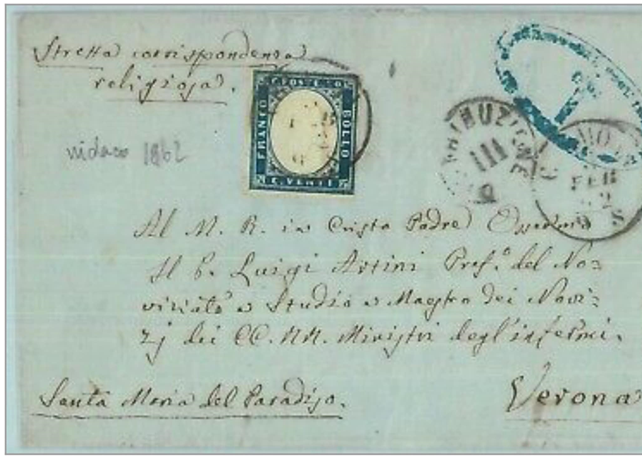 Stretta corrispondenza
religiosa.
FRANCO
C. POSTE 20
BOLLO
C. VENTI
1862
DISTRIBUZIONE
III
FEB
Al M. R. in Cristo Padre
Il P. Luigi Artini Pref.º del No=
viziato e Studio e Maestro dei Novi=
zj dei CC. RR. Ministri degl'infermi.
Santa Maria del Paradiso.
Verona